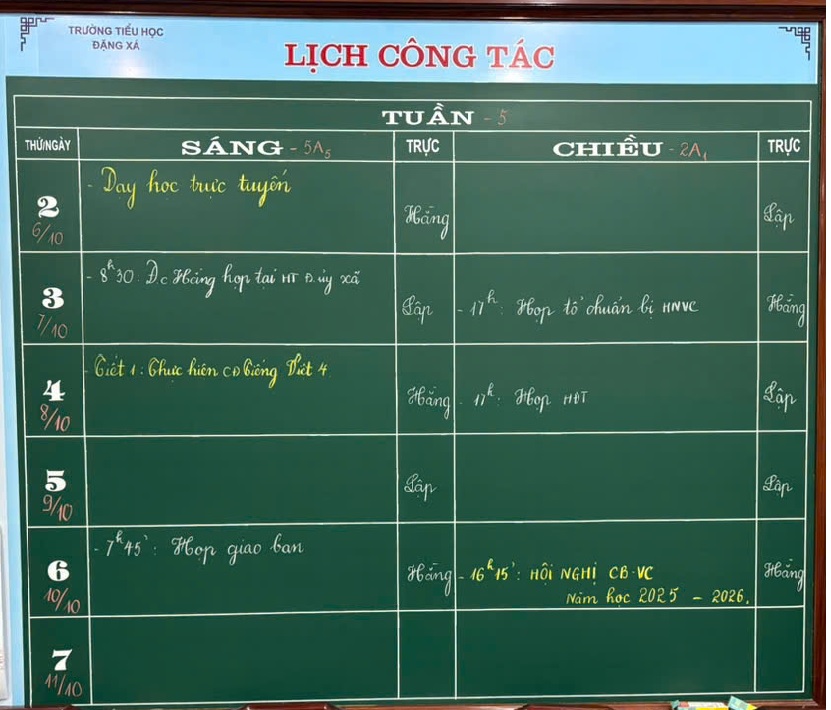 TRƯỜNG TIỂU HỌC
ĐẶNG XÁ
LỊCH CÔNG TÁC
TUẦN - 5
THỨ/NGÀY SÁNG - 5A5 TRỰC CHIỀU - 2A1 TRỰC
2 6/10 - Dạy học trực tuyến Hằng Lập
3 7/10 - 8h30. Đ/c Hằng họp tại HT Đ.ủy xã Lập - 17h: Họp tổ chuẩn bị HNVC Hằng
4 8/10 - Tiết 1: Thực hiện CĐ Tiếng Việt 4. Hằng - 17h: Họp HĐT Lập
5 9/10 Lập Lập
6 10/10 - 7h45': Họp giao ban Hằng - 16h15': HỘI NGHỊ CB-VC Hằng
Năm học 2025 - 2026.
7 11/10